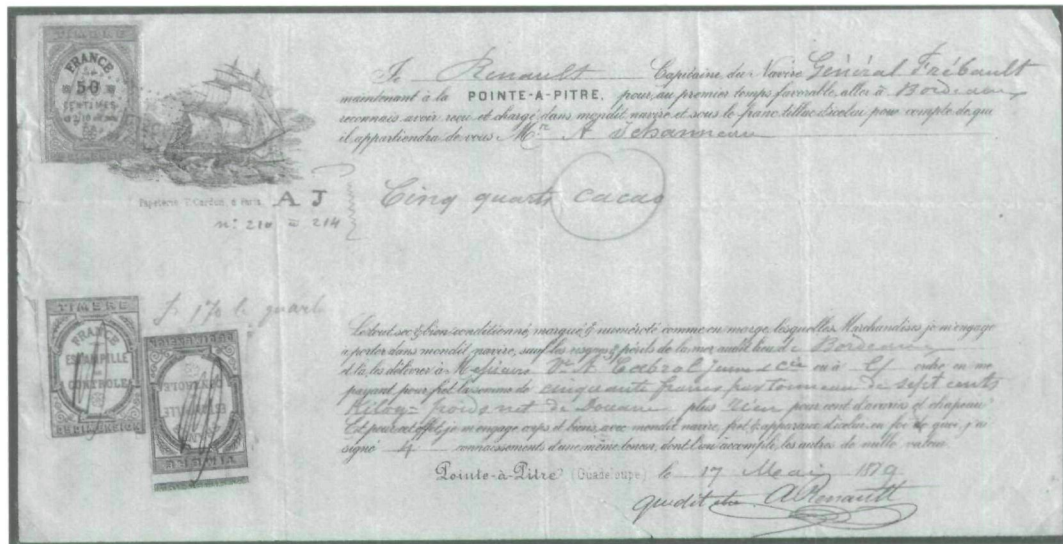 TIMBRE
FRANCE
50
CENTIMES
Je Renault Capitaine du Navire Général Frébault
maintenant à la POINTE-A-PITRE, pour, au premier temps favorable, aller à Bordeaux
reconnais avoir reçu et chargé dans mondit navire et sous le franc tillac d'icelui pour compte de qui
il appartiendra de vous Mr. A
Papeterie
AJ
n: 210 = 214
Cinq quarts cacao
TIMBRE
FRANCE
ESTAMPILLE
CONTROLE
TIMBRE
ESTAMPILLE
CONTROLE
Le tout sec & bien conditionné, marqué & numéroté comme en marge, lesquelles Marchandises je m'engage
à porter dans mondit navire, sauf les risques & périls de la mer audit lieu de Bordeaux
et là, les délivrer à Messieurs Ve A Cabral Junr & cie ou à ordre en me
payant pour fret la somme de cinquante francs par tonneau de sept cents
Kilogs poids net de Douane plus rien pour cent d'avaries et chapeau
Et pour cet effet, je m'engage corps et biens, avec mondit navire, fret & apparaux d'icelui, en foi de quoi, j'ai
signé 4 connaissements d'une même teneur, dont l'un accompli, les autres de nulle valeur.
Pointe-à-Pitre (Guadeloupe) le 17 Mai 1879.
que dit être A Renault